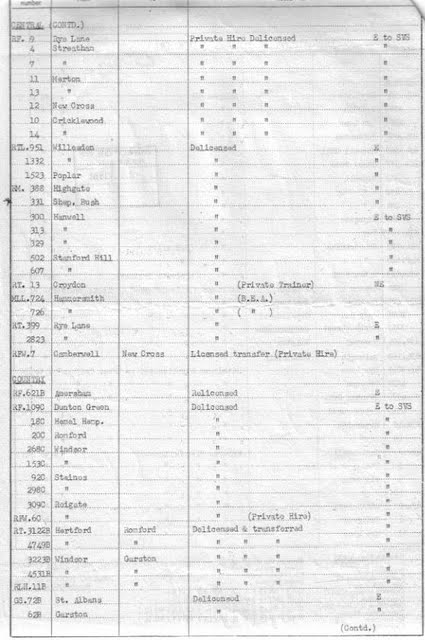 number
CENTRAL (CONTD.)
RF. 9 Rye Lane Private Hire Delicensed E to SVS
4 Streatham " " " "
7 " " " " "
11 Merton " " " "
13 " " " " "
12 New Cross " " " "
10 Cricklewood " " " "
14 " " " " "
RTL.951 Willesden Delicensed E
1332 " " "
1523 Poplar " "
RM. 388 Highgate " "
331 Shep. Bush " "
300 Hanwell " E to SVS
313 " " "
329 " " "
602 Stamford Hill " "
607 " " "
RT. 13 Croydon " (Private Trainer) NE
MLL.724 Hammersmith " (B.E.A.)
726 " " ( " )
RT.399 Rye Lane " E
2823 " " "
RFW.7 Camberwell New Cross Licensed transfer (Private Hire)
COUNTRY
RF.621B Amersham Relicensed E
RF.109C Dunton Green Delicensed E to SVS
18C Hemel Hemp. " "
20C Romford " "
268C Windsor " "
153C " " "
92C Staines " "
298C " " "
309C Reigate " "
RFW.6C " " (Private Hire) "
RT.3122B Hertford Romford Delicensed & transferred "
4749B " " " " " "
3223B Windsor Garston " " " "
4531B " " " " " "
RLH.11B " " " " " "
GS.72B St. Albans Delicensed E
62B Garston " "
(Contd.)